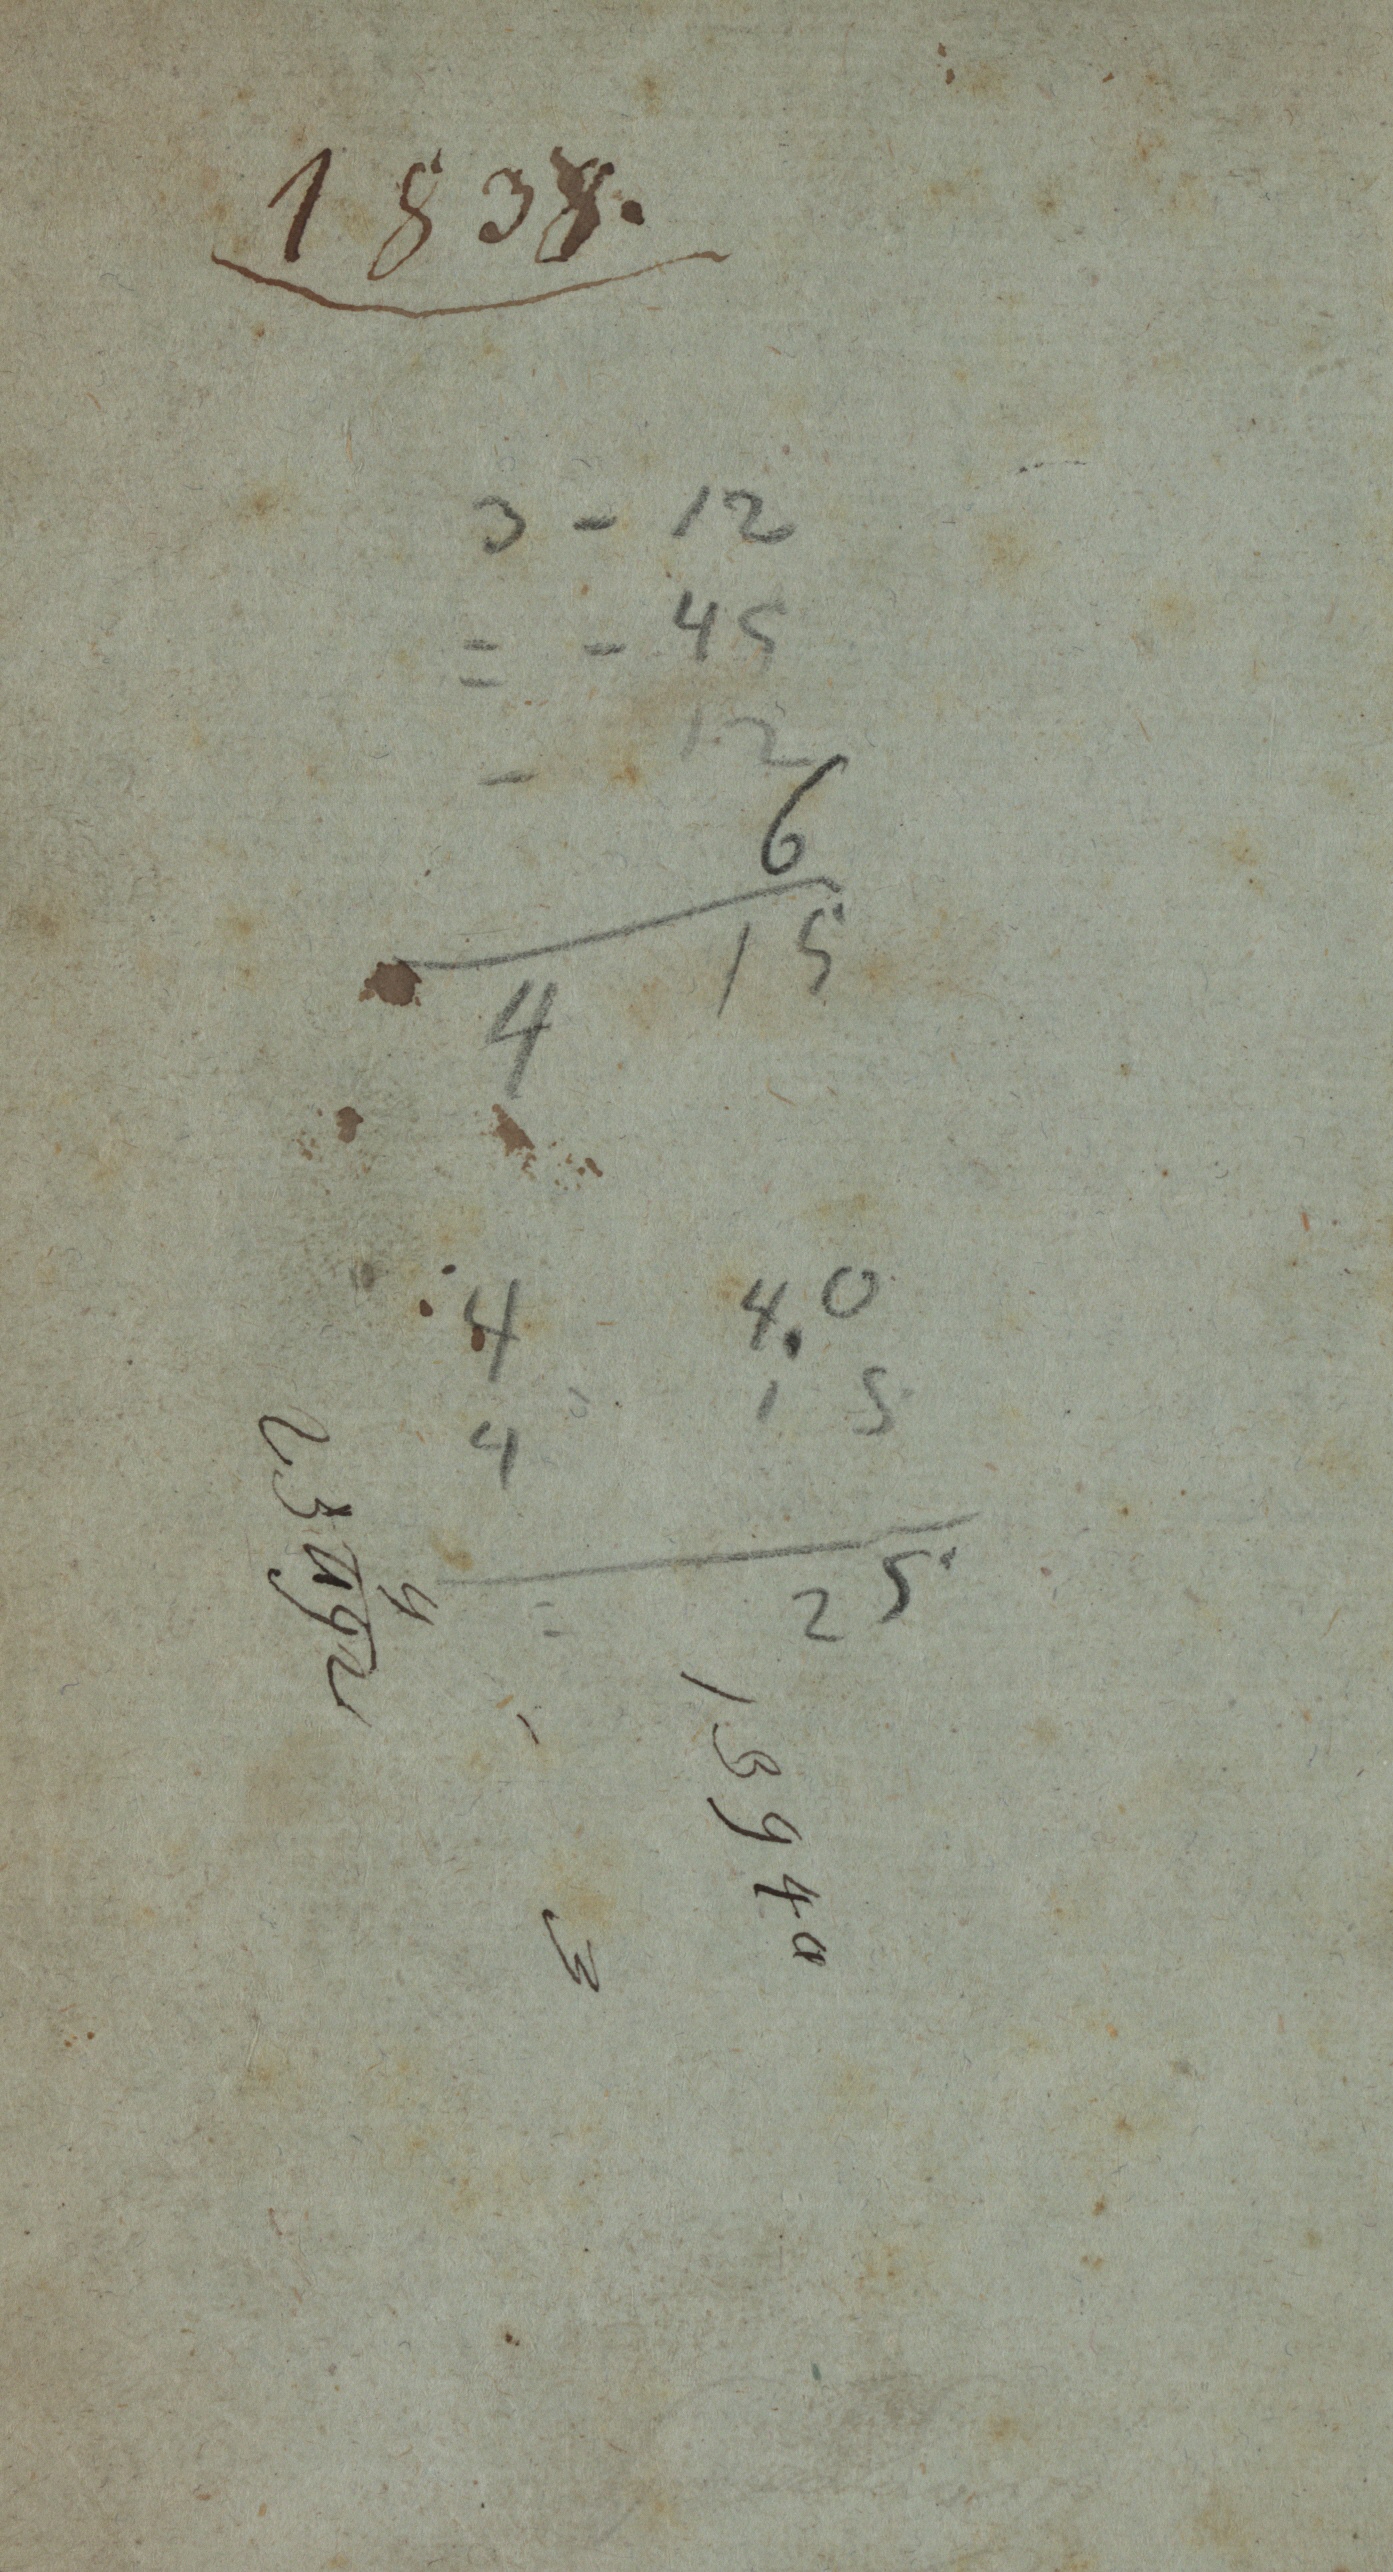 1838.
3 - 12
= - 45
- 12
6
4 15
4 4.0
4 15
= 25
13940
3